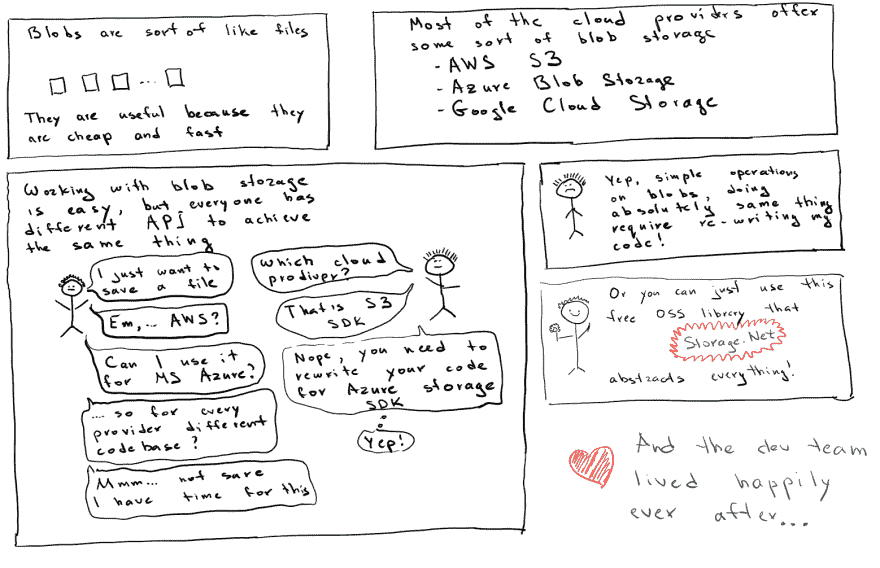 Blobs are sort of like files
...
They are useful because they
are cheap and fast
Most of the cloud providers offer
some sort of blob storage
- AWS S3
- Azure Blob Storage
- Google Cloud Storage
Working with blob storage
is easy, but everyone has
different API to achieve
the same thing
I just want to
save a file
Which cloud
prodivpr?
Em,... AWS?
That is S3
SDK
Can I use it
for MS Azure?
Nope, you need to
rewrite your code
for Azure storage
SDK
.... so for every
provider different
codebase?
Yep!
Mmm... not sure
I have time for this
Yep, simple operations
on blobs, doing
absolutely same thing
require re-writing my
code!
Or you can just use this
free OSS library that
Storage.Net
abstracts everything!
And the dev team
lived happily
ever after...